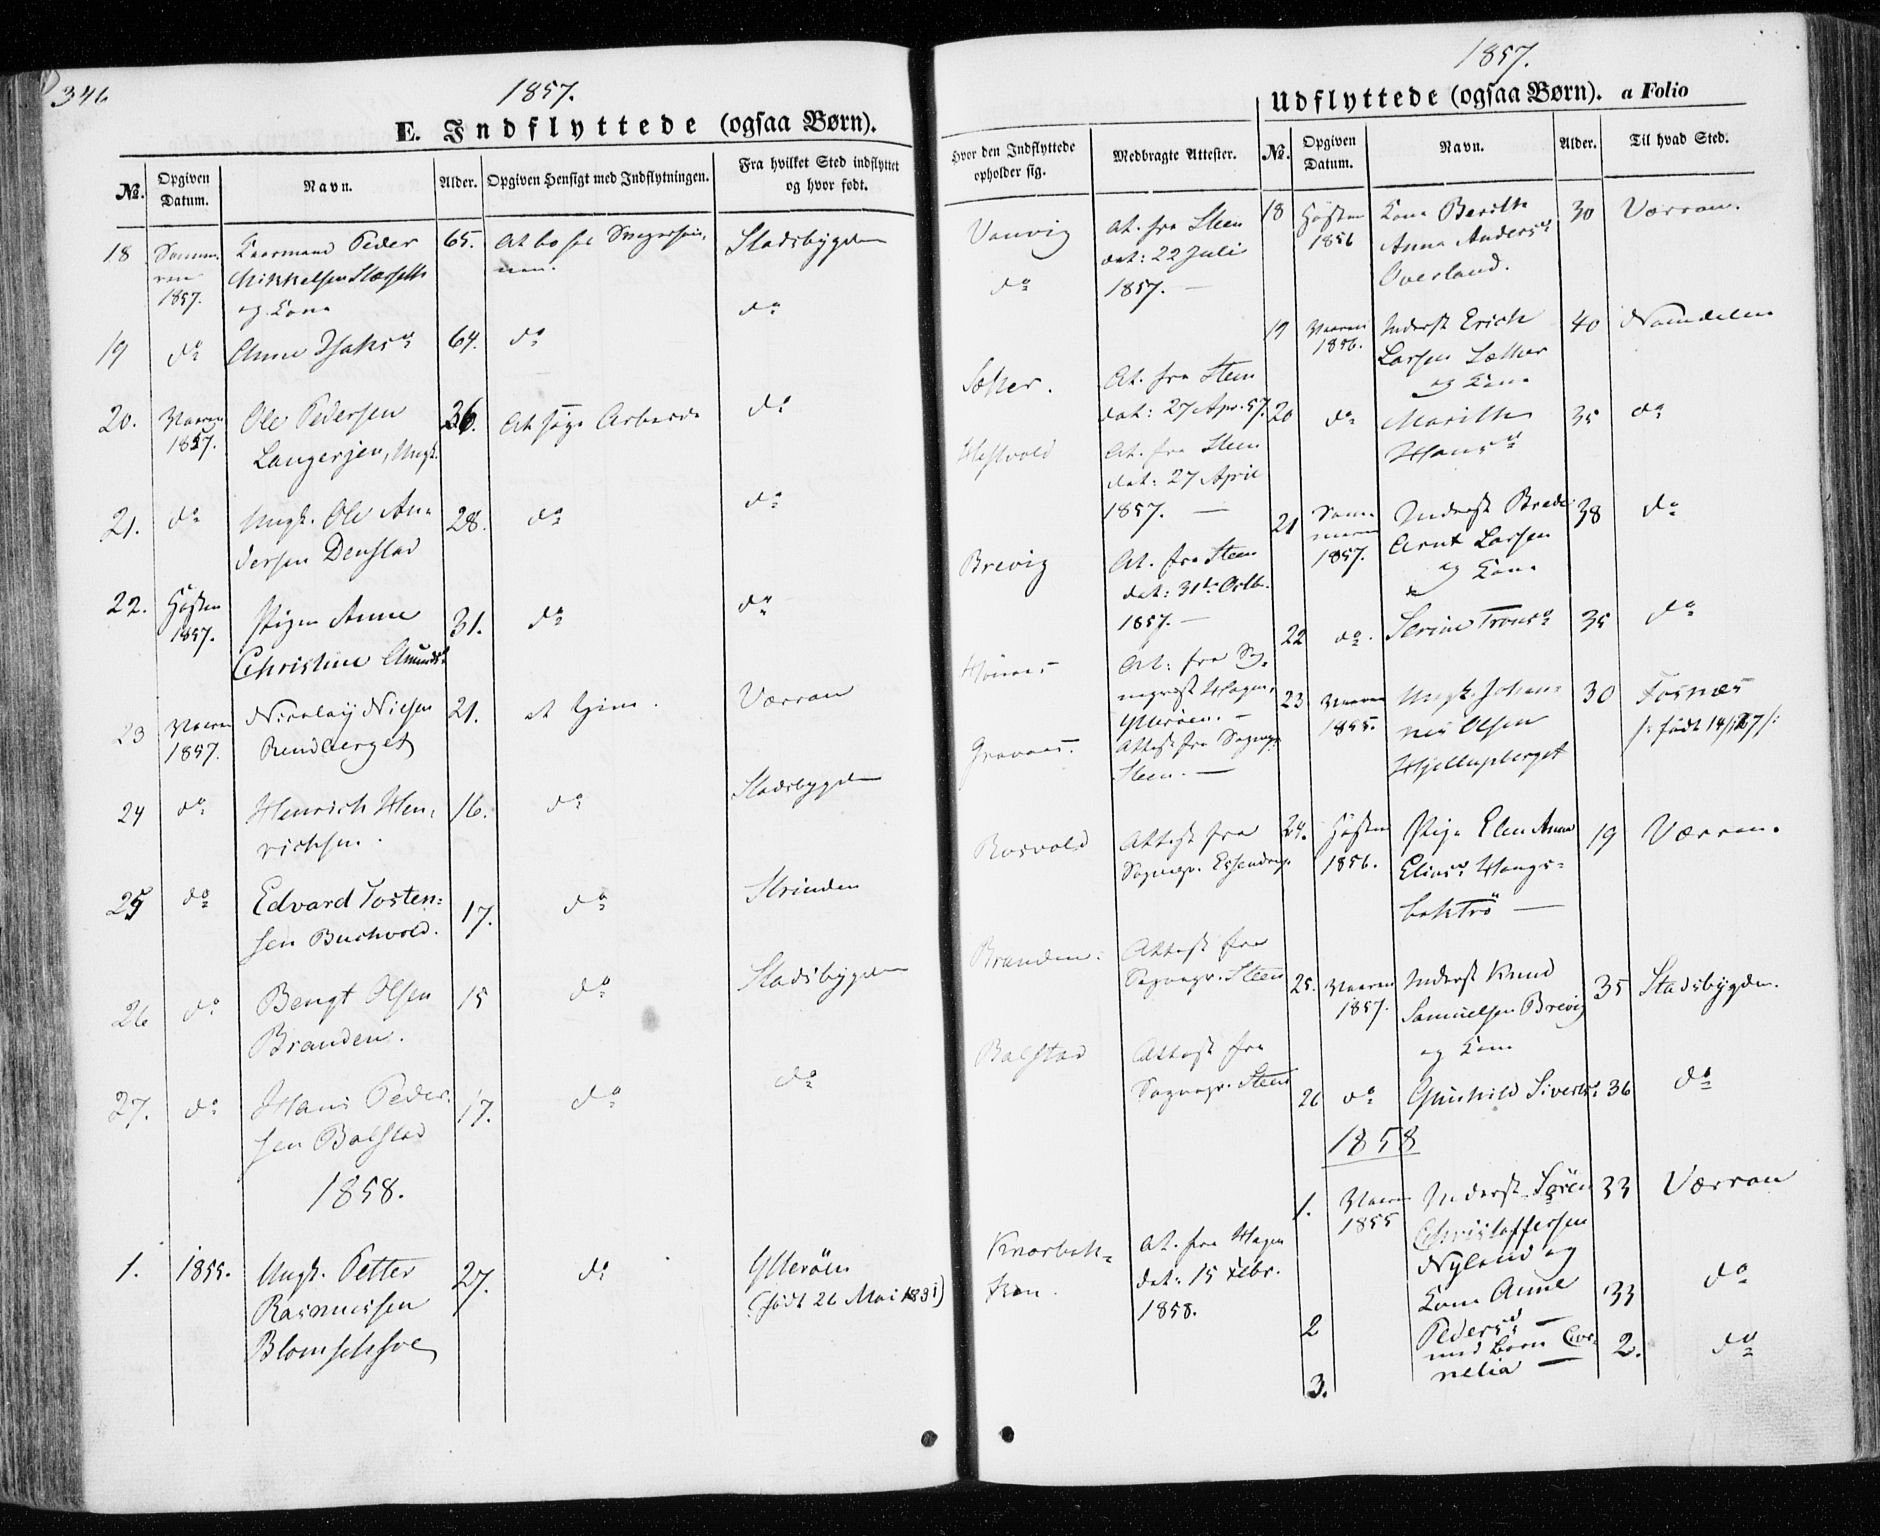 346
1857.
E. Indflyttede (ogsaa Børn).
№. Opgiven Datum. Navn. Alder. Opgiven Hensigt med Indflytningen. Fra hvilket Sted indflyttet og hvor født.
18 Sommeren 1857. Kaarmand Peder 65. At bo hos Stadsbygden
Mikkelsen
og Kone
19 do Anne Isaksd 64. do do
20. Vaaren 1857. Ole Pedersen 26. At søge Arbeide do
Langersjen, Ungk.
21. do Ungk. Ole An- 28. do do
dersen Denstad
22. Høsten 1857. Pigen Anne 31. do do
Christine Amundsd
23 Vaaren 1857. Nicolay Nielsen 21. at tjene. Værran
Rendberget
24 do Henrich Hen- 16. do Stadsbygden
richsen.
25 do Edvard Tosten- 17. do Strinden
sen Buchvold.
26 do Bengt Olsen 15 do Stadsbygden
Branden.
27. do Hans Peder- 17. do do
sen Balstad
1858.
1. 1855. Ungk. Petter 27. do Ytterøen
Rasmussen (født 26 Mai 1831)
1857.
Udflyttede (ogsaa Børn). a Folio
Hvor den Indflyttede opholder sig. Medbragte Attester. №. Opgiven Datum. Navn. Alder. Til hvad Sted.
Vanvig At. fra Steen
do dat: 22 Juli
1857. —
Sæther. At. fra Steen
dat: 27 Apr. 57.
Hestvold At. fra Steen
dat: 27 April
1857. —
Brevig At. fra Steen
dat: 31te Octb.
1857. —
At: fra Sog-
nepræst Hagen,
Ytterøen. —
Attest fra Sognepr.
Steen. —
Rosvold Attest fra
Sognepr. Essendrop
Branden. Attest fra
Sognepr. Steen
Balstad Attest fra
Sognepr. Steen
At. fra Hagen
dat: 15 Febr.
1858.
18 Høsten 1856 Kone Berith 30 Værran.
Anna Andersd
Overland.
19 Vaaren 1856. Inderst Erich 40 Namdalen
Larsen Sæther
og Kone
20 do Marith 35 do
Hansd
21 Sommeren 1857. Inderst Brede 38 do
Arnt Larsen
og Kone
22 do. Serine Tronsd 35 do
23 Vaaren 1855. Ungk. Johan- 30 Fosnæs
nes Olsen
24. Høsten 1856. Pige Elen Anna 19 Værran.
Eliasd Haugs-
baktrö —
25. Vaaren 1857. Inderst Knud 35 Stadsbygden.
Samuelsen Brevig
og Kone
26 do Gunhild Sivertsd 36 do
1858
1. Vaaren 1855 Inderst Sören 33 Værran
Christoffersen
Nyland og
2 Kone Anne 33 do
Pedersd —
3. med Barn Cor- 2. do
nelia —